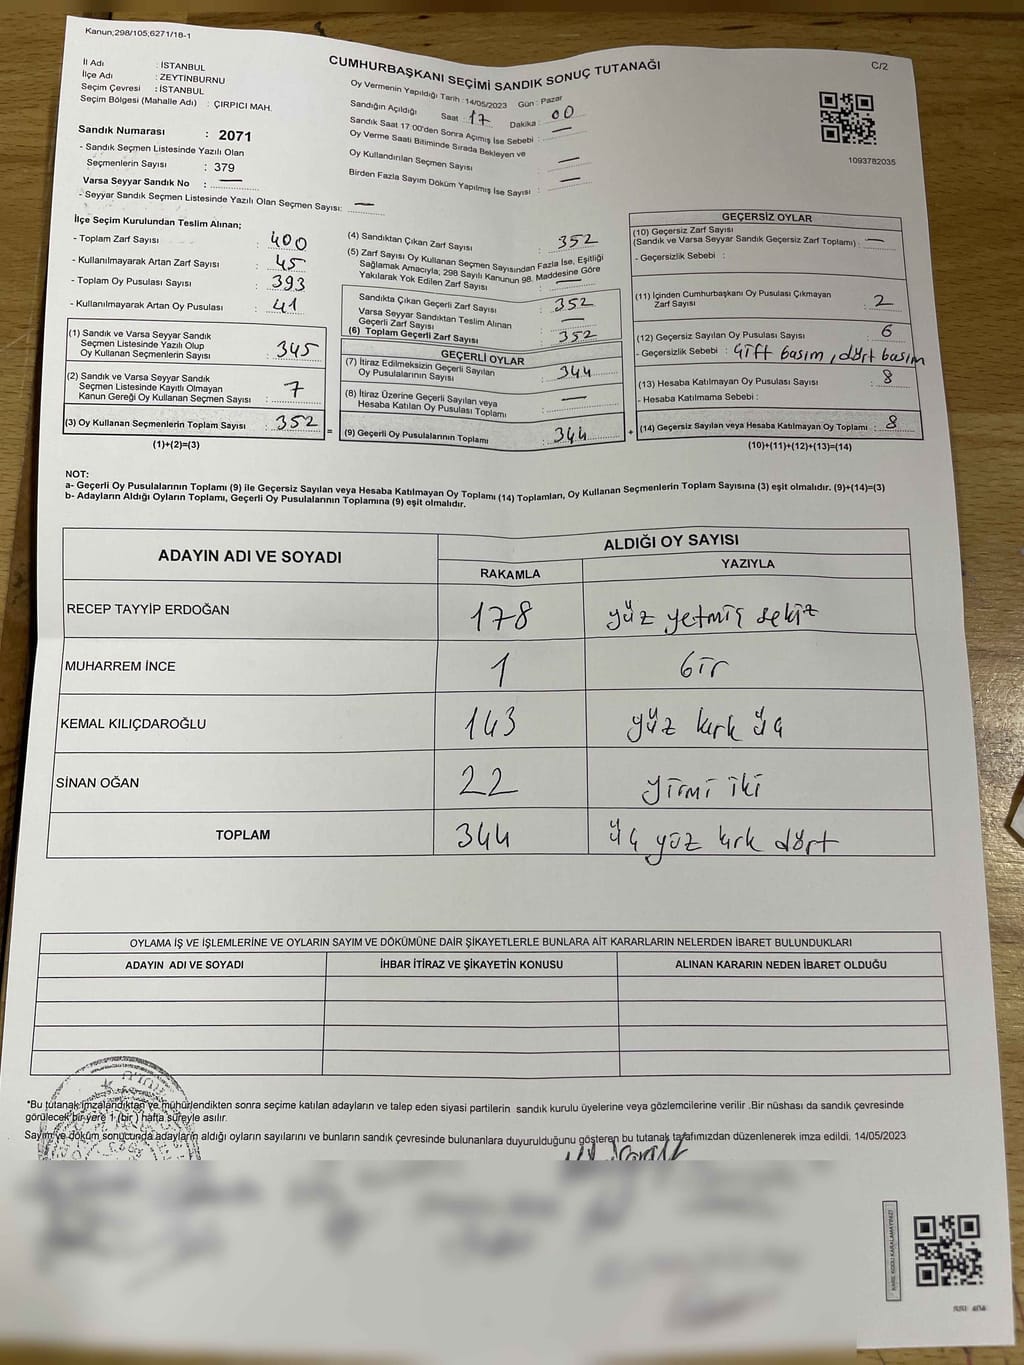 Kanun;298/105,6271/18-1
CUMHURBAŞKANI SEÇİMİ SANDIK SONUÇ TUTANAĞI
C/2
İl Adı : İSTANBUL
İlçe Adı : ZEYTİNBURNU
Seçim Çevresi : İSTANBUL
Seçim Bölgesi (Mahalle Adı) : ÇIRPICI MAH.
Sandık Numarası : 2071
- Sandık Seçmen Listesinde Yazılı Olan
Seçmenlerin Sayısı : 379
Varsa Seyyar Sandık No : —
- Seyyar Sandık Seçmen Listesinde Yazılı Olan Seçmen Sayısı: —
Oy Vermenin Yapıldığı Tarih : 14/05/2023 Gün : Pazar
Sandığın Açıldığı Saat 17 Dakika : 00
Sandık Saat 17:00'den Sonra Açımış İse Sebebi : —
Oy Verme Saati Bitiminde Sırada Bekleyen ve
Oy Kullandırılan Seçmen Sayısı : —
Birden Fazla Sayım Döküm Yapılmış İse Sayısı : —
1093782035
İlçe Seçim Kurulundan Teslim Alınan;
- Toplam Zarf Sayısı : 400
- Kullanılmayarak Artan Zarf Sayısı : 45
- Toplam Oy Pusulası Sayısı : 393
- Kullanılmayarak Artan Oy Pusulası : 41
(1) Sandık ve Varsa Seyyar Sandık
Seçmen Listesinde Yazılı Olup
Oy Kullanan Seçmenlerin Sayısı : 345
(2) Sandık ve Varsa Seyyar Sandık
Seçmen Listesinde Kayıtlı Olmayan
Kanun Gereği Oy Kullanan Seçmen Sayısı : 7
(3) Oy Kullanan Seçmenlerin Toplam Sayısı : 352
(1)+(2)=(3)
=
(4) Sandıktan Çıkan Zarf Sayısı : 352
(5) Zarf Sayısı Oy Kullanan Seçmen Sayısından Fazla İse, Eşitliği
Sağlamak Amacıyla; 298 Sayılı Kanunun 98. Maddesine Göre
Yakılarak Yok Edilen Zarf Sayısı : —
Sandıkta Çıkan Geçerli Zarf Sayısı : 352
Varsa Seyyar Sandıktan Teslim Alınan
Geçerli Zarf Sayısı : —
(6) Toplam Geçerli Zarf Sayısı : 352
GEÇERLİ OYLAR
(7) İtiraz Edilmeksizin Geçerli Sayılan
Oy Pusulalarının Sayısı : 344
(8) İtiraz Üzerine Geçerli Sayılan veya
Hesaba Katılan Oy Pusulası Toplamı : —
(9) Geçerli Oy Pusulalarının Toplamı : 344
+
GEÇERSİZ OYLAR
(10) Geçersiz Zarf Sayısı
(Sandık ve Varsa Seyyar Sandık Geçersiz Zarf Toplamı) : —
- Geçersizlik Sebebi :
(11) İçinden Cumhurbaşkanı Oy Pusulası Çıkmayan
Zarf Sayısı : 2
(12) Geçersiz Sayılan Oy Pusulası Sayısı : 6
- Geçersizlik Sebebi : Çift basım, dört basım
(13) Hesaba Katılmayan Oy Pusulası Sayısı : 8
- Hesaba Katılmama Sebebi :
(14) Geçersiz Sayılan veya Hesaba Katılmayan Oy Toplamı : 8
(10)+(11)+(12)+(13)=(14)
NOT:
a- Geçerli Oy Pusulalarının Toplamı (9) ile Geçersiz Sayılan veya Hesaba Katılmayan Oy Toplamı (14) Toplamları, Oy Kullanan Seçmenlerin Toplam Sayısına (3) eşit olmalıdır. (9)+(14)=(3)
b- Adayların Aldığı Oyların Toplamı, Geçerli Oy Pusulalarının Toplamına (9) eşit olmalıdır.
ADAYIN ADI VE SOYADI
ALDIĞI OY SAYISI
RAKAMLA YAZIYLA
RECEP TAYYİP ERDOĞAN 178 yüz yetmiş sekiz
MUHARREM İNCE 1 bir
KEMAL KILIÇDAROĞLU 143 yüz kırk üç
SİNAN OĞAN 22 yirmi iki
TOPLAM 344 üç yüz kırk dört
OYLAMA İŞ VE İŞLEMLERİNE VE OYLARIN SAYIM VE DÖKÜMÜNE DAİR ŞİKAYETLERLE BUNLARA AİT KARARLARIN NELERDEN İBARET BULUNDUKLARI
ADAYIN ADI VE SOYADI İHBAR İTİRAZ VE ŞİKAYETİN KONUSU ALINAN KARARIN NEDEN İBARET OLDUĞU
*Bu tutanak imzalandıktan ve mühürlendikten sonra seçime katılan adayların ve talep eden siyasi partilerin sandık kurulu üyelerine veya gözlemcilerine verilir .Bir nüshası da sandık çevresinde
görülecek bir yere 1 (bir ) hafta süreyle asılır.
Sayım ve döküm sonucunda adayların aldığı oyların sayılarını ve bunların sandık çevresinde bulunanlara duyurulduğunu gösteren bu tutanak tarafımızdan düzenlenerek imza edildi. 14/05/2023